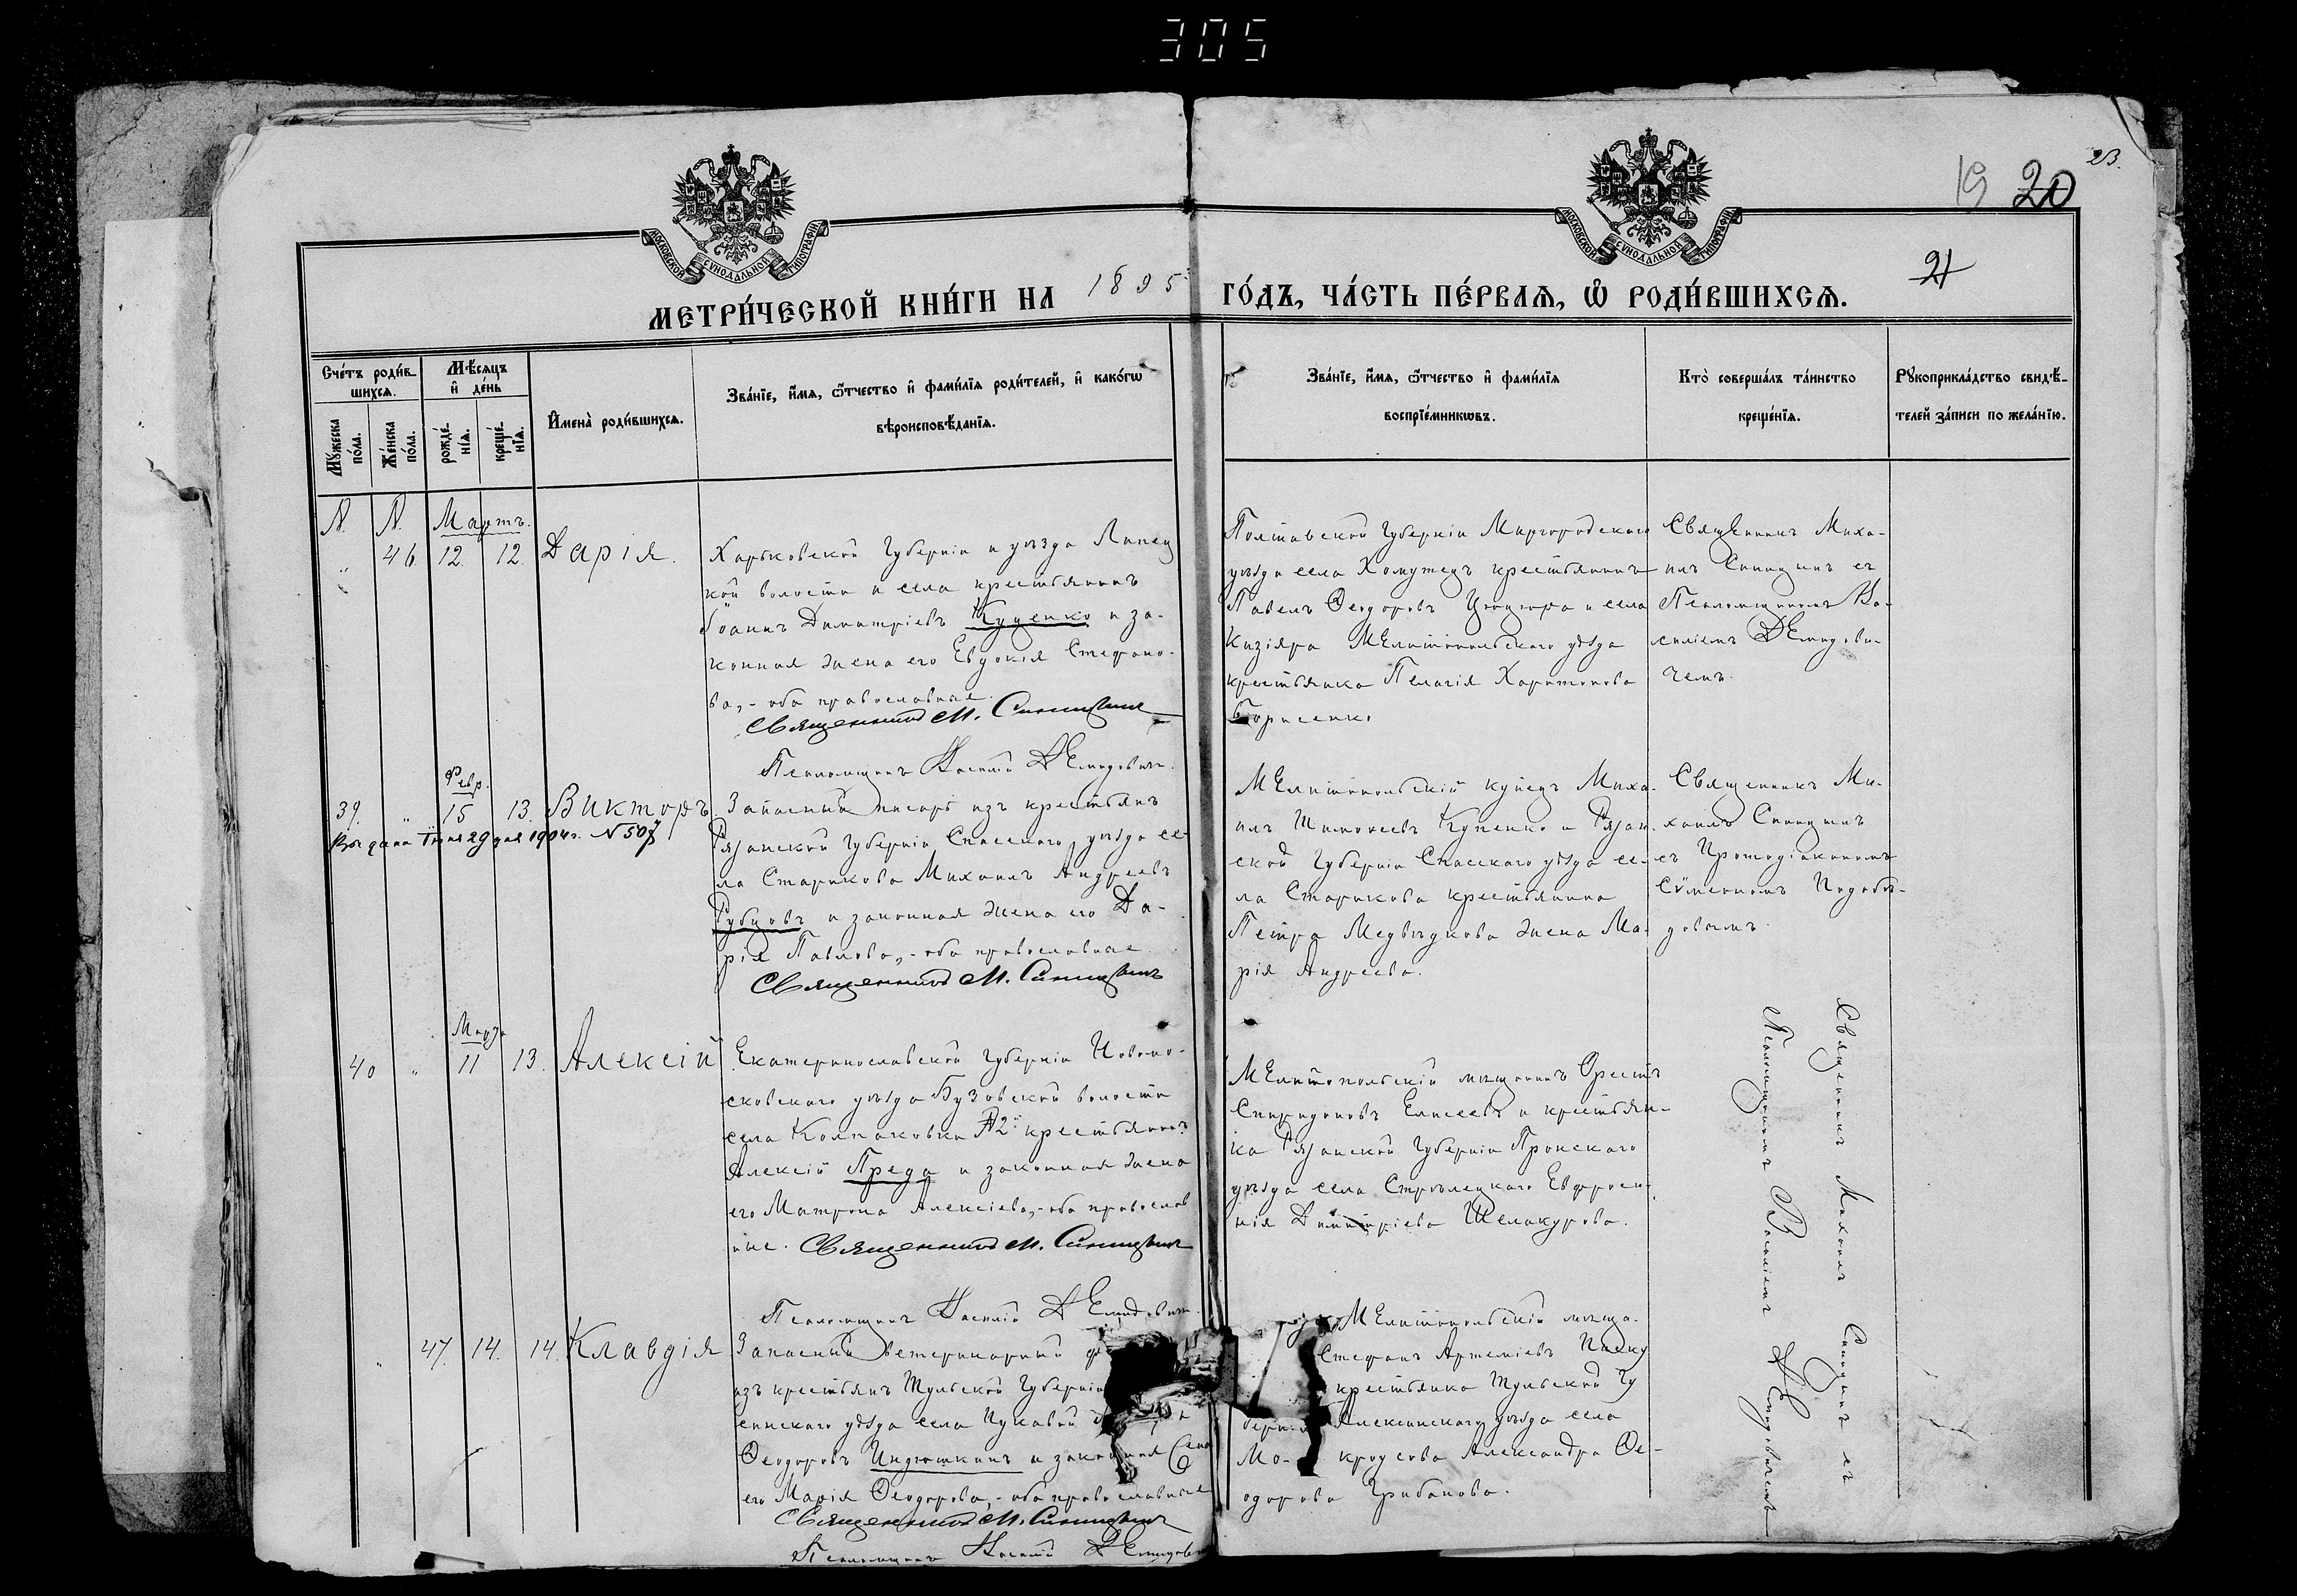 305
23.
19 20
21
МОСКОВСКОЙ СѴНОДАЛЬНОЙ ТИПОГРАФІИ
МОСКОВСКОЙ СѴНОДАЛЬНОЙ ТИПОГРАФІИ
МЕТРИ́ЧЕСКОЙ КНИ́ГИ НА 1895 ГО́ДЪ, ЧА́СТЬ ПЕ́РВАѦ, Ѡ РОДИ́ВШИХСѦ.
Сче́тъ роди́в-
шихсѧ.
Мꙋ́жеска по́ла.
Же́нска по́ла.
Мѣ́сѧцъ
и҆ де́нь
рожде́-
нїѧ.
креще́-
нїѧ.
И҆мена̀ роди́вшихсѧ.
Зва́нїе, и҆́мѧ, ѻ҆́тчество и҆ фами́лїѧ роди́телей, и҆ како́гѡ
вѣроисповѣ́данїѧ.
Зва́нїе, и҆́мѧ, ѻ҆́тчество и҆ фами́лїѧ
воспрїе́мникѡвъ.
Кто̀ соверша́лъ та́инство
креще́нїѧ.
Рꙋкоприкла́дство свидѣ́-
телей за́писи по жела́нїю.
N. N. Мартъ.
" 46 12. 12. Дарія.
Харьковской губерніи и уѣзда Липец
кой волости и села крестьянинъ
Іоаннъ Димитріевъ Куценко и за-
конная жена его Евдокія Стефано-
ва, - оба православные.
Священникъ М. Синицынъ
Псаломщикъ Василій Демидовичъ.
Полтавской губерніи Миргородскаго
уѣзда села Хомутецъ крестьянинъ
Павелъ Ѳеодоровъ и села
Кизіяра Мелитопольскаго уѣзда
крестьянка Пелагія Харитонова
Борисенко
Священникъ Миха-
илъ Синицынъ съ
Псаломщикомъ Ва-
силіемъ Демидови-
чемъ.
Февр.
39. " 15 13. Викторъ
Выдана Іюня 29 дня 1904 г. N 507
Запасный писарь изъ крестьянъ
Рязанской губерніи Спасскаго уѣзда се-
ла Старикова Михаилъ Андреевъ
Рубцовъ и законная жена его Да-
рія Павлова, - оба православные
Священникъ М. Синицынъ
Мелитопольскій купецъ Миха-
илъ Тимоѳеевъ Купенко и Рязан-
ской губерніи Спасскаго уѣзда се-
ла Старикова крестьянина
Петра Медвѣдкова жена Ма-
рія Андреева.
Священникъ Ми-
хаилъ Синицынъ
съ Протодіакономъ
Сѵмеономъ
довымъ.
Марта
40 " 11 13. Алексій
Екатеринославской губерніи Новомо-
сковскаго уѣзда Бузовской волости
села Колпаковки 2й крестьянинъ
Алексій Преда и законная жена
его Матрона Алексіева, - оба православ
ные. Священникъ М. Синицынъ
Псаломщикъ Василій Демидовичъ.
Мелитопольскій мѣщанинъ Орестъ
Спиридоновъ Елисеевъ и крестьян-
ка Рязанской губерніи Пронскаго
уѣзда села Стрѣлецкаго Евфроси-
нія Димитріева Шелакурова.
Священникъ Михаилъ Синицынъ съ
Псаломщикомъ Василіемъ Демидовичемъ
" 47. 14. 14. Клавдія
Запасный ветеринарный
изъ крестьянъ Тульской губерніи
синскаго уѣзда села
Ѳеодоровъ Индюшкинъ и законная жена
его Марія Ѳеодорова, - оба православные
Священникъ М. Синицынъ
Псаломщикъ Василій Демидович
Мелитопольскій мѣща-
Стефанъ Артеміевъ
крестьянка Тульской гу
берніи Алексинскаго уѣзда села
Мо- кроусова Александра Ѳе-
одорова Грибанова.